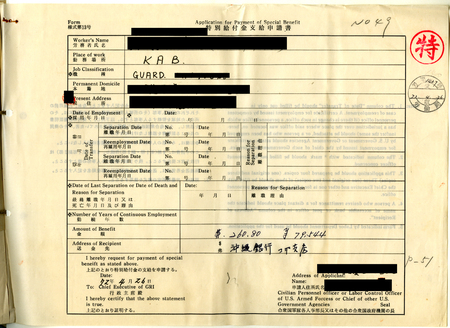 Form
様式第13号
Application for Payment of Special Benefit
特別給付金支給申請書
No 49
特
Worker's Name
労務者氏名
Place of work
勤務場所
KAB.
Job Classification
職種
GUARD.
Permanent Domicile
本籍地
Present Address
住所
Date of Employment
採用年月日
Date of Transfer
Separation Date
離職年月日
No.
番号
Date
年月日
Reemployment Date
再採用年月日
No.
番号
Date
年月日
Separation Date
離職年月日
No.
番号
Date
年月日
Reemployment Date
再採用年月日
No.
番号
Date
年月日
Reason for Separation
離職理由
Date of Last Separation or Date of Death and Reason
年月日
Reason for Separation
離職理由
Number of Years of Continuous Employment
勤続年数
年
Amount of Benefit
金額
$. 260.80 ¥79,544
Address of Recipient
送金先
沖縄銀行 コザ支店
I hereby request for payment of special
benefit as stated above.
上記のとおり特別給付金の支給を申請する。
Date:
To: Chief Executive of GRI
行政主席殿
I hereby certify that the above statement
is true.
上記のとおり証明する。
Address of Applicant:
Name:
申請人住所氏名
Civilian Personnel officer or Labor Control Officer
of U.S. Armed Forces or Chief of other U.S.
Government Agencies:
合衆国軍隊各人事部長又はその他の合衆国政府機関の長
P-51